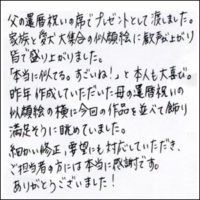 父の還暦祝いの席でプレゼントとして渡しました。
家族と愛犬大集合の似顔絵に歓声が上がり
皆で盛り上がりました。
「本当に似てる。すごいね!」と本人も大喜び。
昨年作成していただいた母の還暦祝いの
似顔絵の横に今回の作品を並べて飾り
満足そうに眺めていました。
細かい修正、要望にも対応していただき、
ご担当者の方には本当に感謝です。
ありがとうございました!